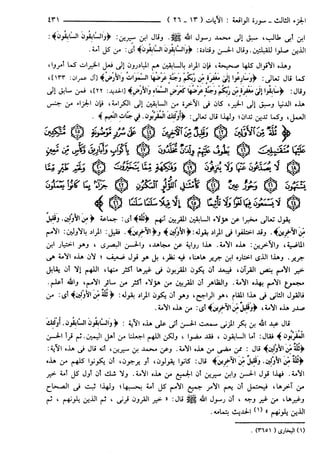 الجزء الثالث - سورة الواقعة : الآيات ( ١٣ ـ ٢٦ ) ٤٣١
ابن أبى طالب، سبق إلى محمد رسول الله ﷺ . وقال ابن سيرين: ﴿وَالسَّابِقُونَ السَّابِقُونَ﴾:
الذين صلوا للقبلتين. وقال الحسن وقتادة: ﴿وَالسَّابِقُونَ السَّابِقُونَ﴾ أى: من كل أمة.
وهذه الأقوال كلها صحيحة، فإن المراد بالسابقين هم المبادرون إلى فعل الخيرات كما أمروا،
كما قال تعالى: ﴿وَسَارِعُوا إِلَىٰ مَغْفِرَةٍ مِن رَّبِّكُمْ وَجَنَّةٍ عَرْضُهَا السَّمَوَاتُ وَالْأَرْضُ﴾ (آل عمران: ١٣٣)،
وقال: ﴿سَابِقُوا إِلَىٰ مَغْفِرَةٍ مِن رَّبِّكُمْ وَجَنَّةٍ عَرْضُهَا كَعَرْضِ السَّمَاءِ وَالْأَرْضِ﴾ (الحديد: ٢١)، فمن سابق إلى
هذه الدنيا وسبق إلى الخير، كان فى الآخرة من السابقين إلى الكرامة، فإن الجزاء من جنس
العمل، وكما تدين تدان؛ ولهذا قال تعالى: ﴿أُولَٰئِكَ الْمُقَرَّبُونَ. فِي جَنَّاتِ النَّعِيمِ﴾ .
يقول تعالى مخبرا عن هؤلاء السابقين المقربين أنهم ﴿ثُلَّةٌ﴾ أى: جماعة ﴿مِنَ الْأَوَّلِينَ. وَقَلِيلٌ
مِّنَ الْآخِرِينَ﴾. وقد اختلفوا فى المراد بقوله: ﴿الْأَوَّلِينَ﴾ و﴿الْآخِرِينَ﴾. فقيل: المراد بالأولين: الأمم
الماضية، والآخرين: هذه الأمة. هذا رواية عن مجاهد، والحسن البصرى ، وهو اختيار ابن
جرير. وهذا الذى اختاره ابن جرير هاهنا، فيه نظر، بل هو قول ضعيف ؛ لأن هذه الأمة هى
خير الأمم بنص القرآن، فيبعد أن يكون المقربون فى غيرها أكثر منها، اللهم إلا أن يقابل
مجموع الأمم بهذه الأمة. والظاهر أن المقربين من هؤلاء أكثر من سائر الأمم، والله أعلم.
فالقول الثانى فى هذا المقام ،هو الراجح، وهو أن يكون المراد بقوله: ﴿ثُلَّةٌ مِّنَ الْأَوَّلِينَ﴾ أى: من
صدر هذه الأمة، ﴿وَقَلِيلٌ مِّنَ الْآخِرِينَ﴾ أى: من هذه الأمة.
قال عبد الله بن بكر المزنى سمعت الحسن أتى على هذه الآية : ﴿وَالسَّابِقُونَ السَّابِقُونَ. أُولَٰئِكَ
الْمُقَرَّبُونَ﴾ فقال: أما السابقون ، فقد مضوا ، ولكن اللهم اجعلنا من أهل اليمين. ثم قرأ الحسن
﴿ثُلَّةٌ مِّنَ الْأَوَّلِينَ﴾ قال : ممن مضى من هذه الأمة. وعن محمد بن سيرين، أنه قال فى هذه الآية:
﴿ثُلَّةٌ مِّنَ الْأَوَّلِينَ. وَقَلِيلٌ مِّنَ الْآخِرِينَ﴾ قال: كانوا يقولون، أو يرجون، أن يكونوا كلهم من هذه
الأمة. فهذا قول الحسن وابن سيرين أن الجميع من هذه الأمة. ولا شك أن أول كل أمة خير
من آخرها، فيحتمل أن يعم الأمر جميع الأمم كل أمة بحسبها؛ ولهذا ثبت فى الصحاح
وغيرها، من غير وجه ، أن رسول الله ﷺ قال: « خير القرون قرنى ، ثم الذين يلونهم ، ثم
الذين يلونهم » (١) الحديث بتمامه.
(١) البخارى (٣٦٥١) .